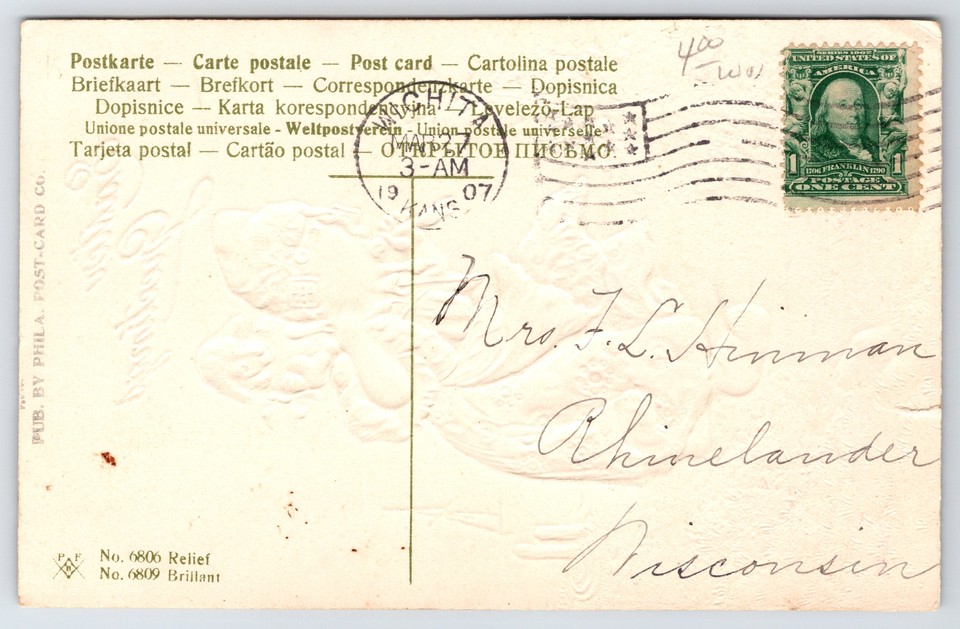 Postkarte — Carte postale — Post card — Cartolina postale
Briefkaart — Brefkort — Correspondenzkarte — Dopisnica
Dopisnice — Karta korespondencyjna — Levelező-Lap
Unione postale universale - Weltpostverein - Union postale universelle
Tarjeta postal — Cartão postal — ОТКРЫТОЕ ПИСЬМО.
WICHITA
3-AM
1907
KANS
400
SERIES 1902
UNITED STATES OF
AMERICA
1 1706 FRANKLIN 1790 1
POSTAGE
ONE CENT
PUB. BY PHILA. POST-CARD CO.
Mrs. F. L. Hinman
Rhinelander
Wisconsin
P F
B
No. 6806 Relief
No. 6809 Brillant